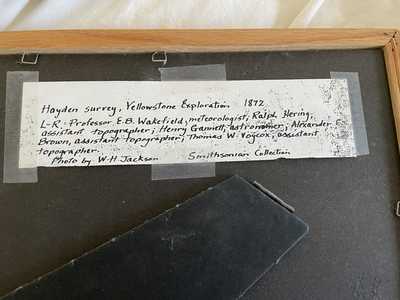 Hayden surrey, Yellowstone Exploration 1872
L-R- Professor E.B. Wakefield, meteorologist, Ralph Hering,
assistant topographer; Henry Gannett, astronomer; Alexander E.
Brown, assistant topographer; Thomas W. Yoycox, assistant
topographer.
Photo by W.H. Jackson Smithsonian Collection